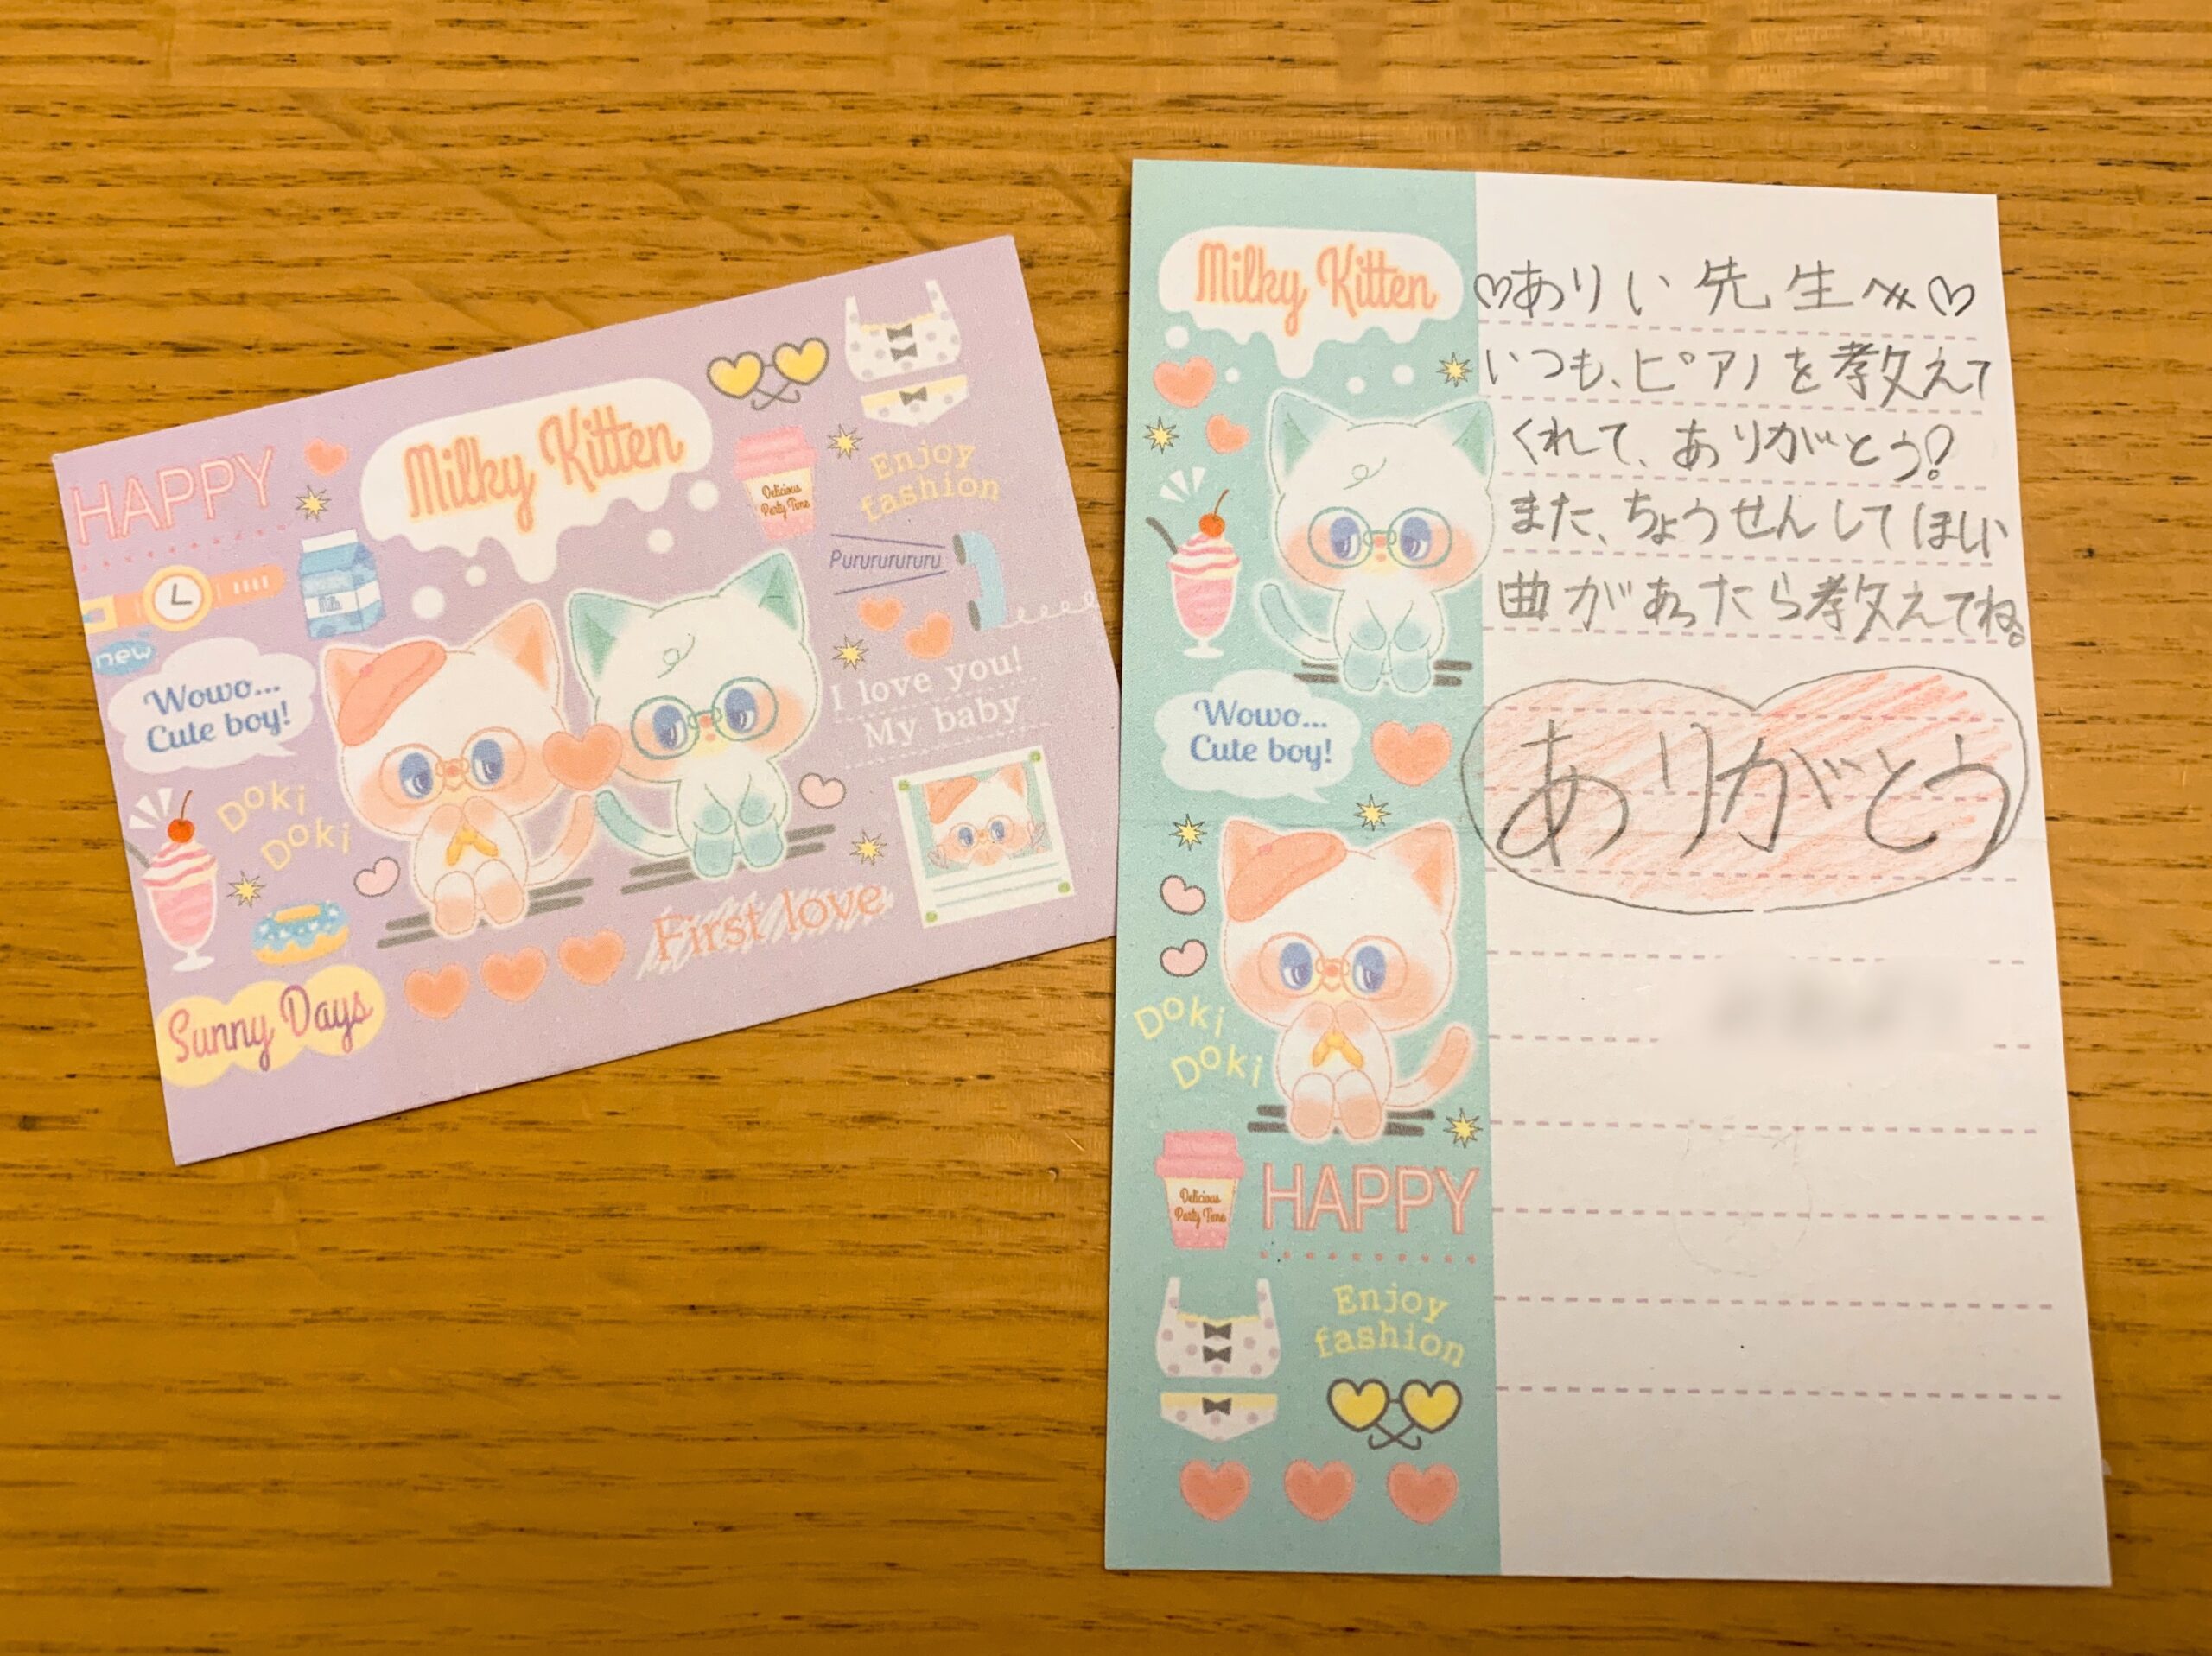 HAPPY
Milky Kitten
Delicious
Party Time
Enjoy
fashion
Pururururururu
Milk
new
Wowo...
Cute boy!
I love you!
My baby
Doki
Doki
First love
Sunny Days
Milky Kitten
♡ありい先生へ♡
いつも、ピアノを教えて
くれて、ありがとう!
また、ちょうせんしてほしい
曲があったら教えてね。
ありがとう
Wowo...
Cute boy!
Doki
Doki
Delicious
Party Time
HAPPY
Enjoy
fashion